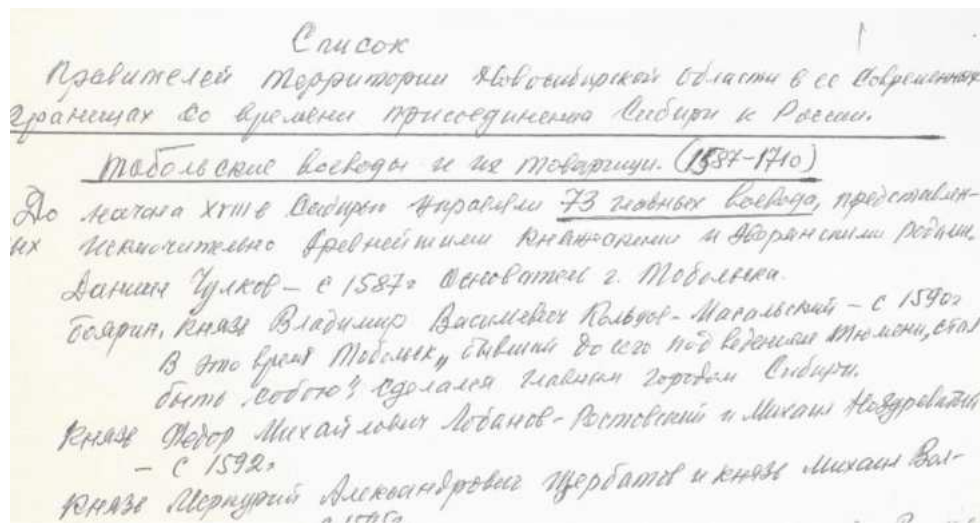 Список
Правителей территории Новосибирской области в ее современных
границах со времени присоединения Сибири к России.
Тобольские воеводы и их товарищи. (1587-1710)
До начала XVIII в Сибирью управляли 73 главных воевода, представлен-
ых исключительно древнейшими княжескими и дворянскими родами.
Даниил Чулков – с 1587г Основатель г. Тобольска.
боярин, князь Владимир Васильевич Кольцов-Масальский – с 1590г
В это время Тобольск „бывший до сего под ведением Тюмени, стал
быть собою“, сделался главным городом Сибири.
Князь Федор Михайлович Лобанов-Ростовский и Михаил Ноздреватый
– с 1592г
Князь Меркурий Александрович Щербатов и князь Михаил Вол-